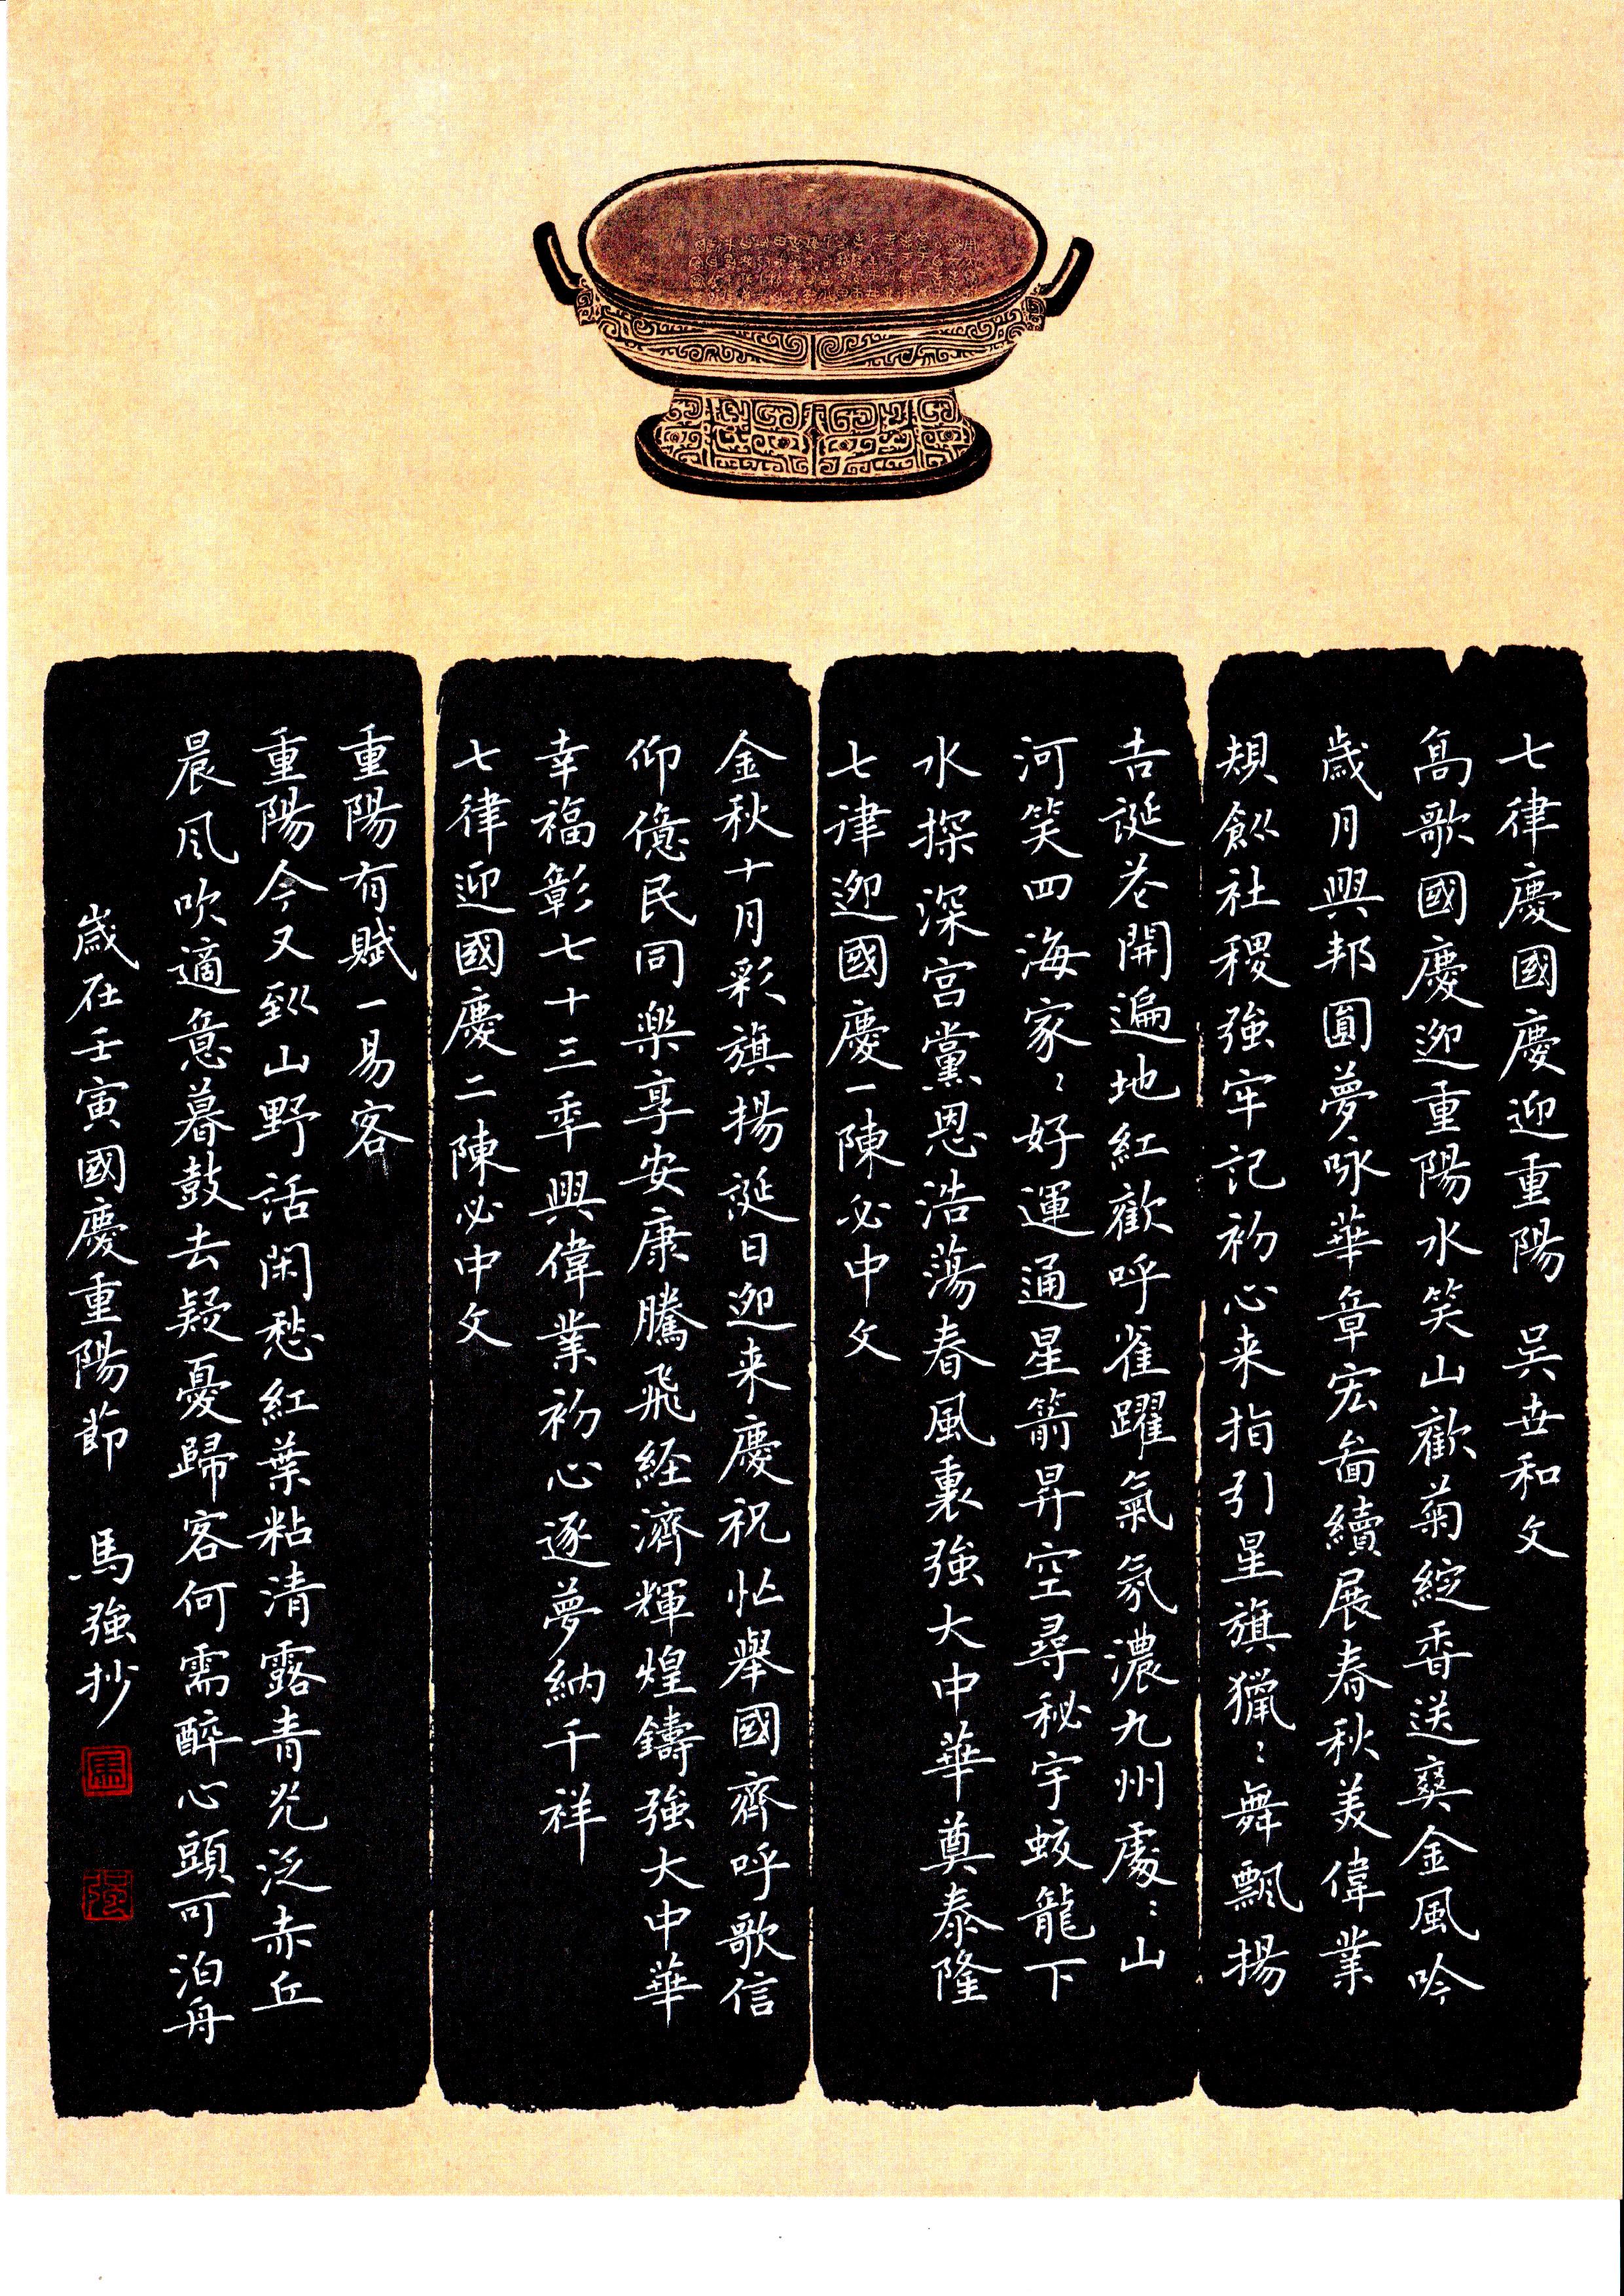 七律慶國慶迎重陽 吴世和文
高歌國慶迎重陽水笑山歡菊綻香送爽金風吟
歲月興邦圓夢咏華章宏啚續展春秋美偉業
頰歛社稷強牢記初心来指引星旗獵〻舞飄揚
吉誕花開遍地紅歡呼雀躍氣氛濃九州處〻山
河笑四海家〻好運通星箭昇空尋秘宇蛟龍下
水探深宮黨恩浩蕩春風裏強大中華奠泰隆
七律迎國慶一陳必中文
金秋十月彩旗揚誕日迎来慶祝忙舉國齊呼歌信
仰億民同樂享安康騰飛経濟輝煌鑄強大中華
幸福彰七十三年興偉業初心逐夢納千祥
七律迎國慶二陳必中文
重陽有賦一易客
重陽今又到山野話閑愁紅葉粘清露青光泛赤丘
晨風吹適意暮鼓去疑憂歸客何需醉心頭可泊舟
歲在壬寅國慶重陽節 馬強抄
馬
強